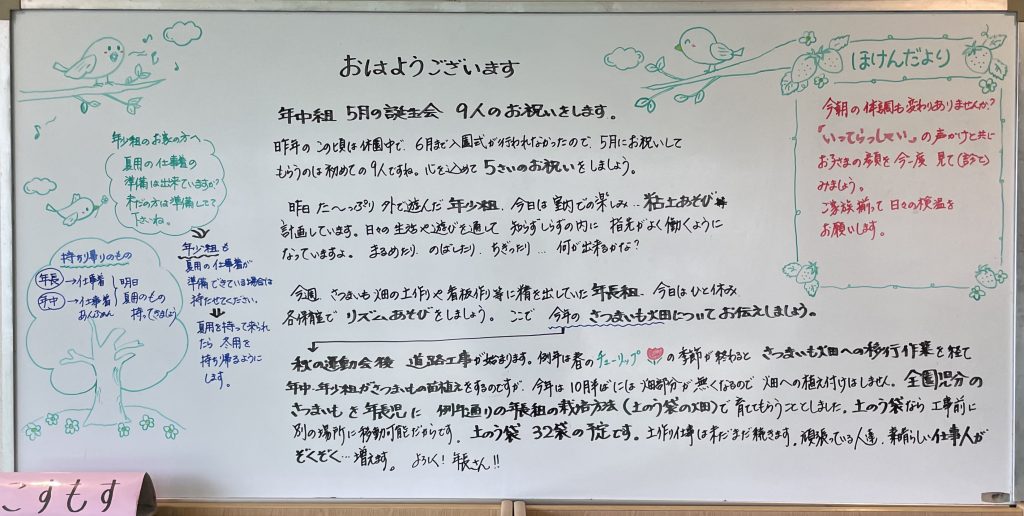 おはようございます
年中組 5月の誕生会 9人のお祝いをします。
昨年のこの頃は休園中で、6月まで入園式が行われなかったので、5月にお祝いして
もらうのは初めての9人ですね。心を込めて5さいのお祝いをしましょう。
昨日 た〜っぷり 外で遊んだ 年少組、今日は室内での楽しみ… 粘土あそび
計画しています。日々の生活や遊びを通して 知らずしらずの内に 指先がよく働くように
なっていますよ。まるめたり、のばしたり、ちぎったり… 何が出来るかな?
今週、さつまいも畑の土作りや看板作り等に精を出していた 年長組、今日はひと休み
各保育室で リズムあそびをしましょう。ここで 今年のさつまいも畑についてお伝えしましょう。
秋の運動会後 道路工事が始まります。例年は春のチューリップの季節が終わると さつまいも畑への移行作業を経て
年中・年少組がさつまいもの苗植えをするのですが、今年は10月半ばには畑部分が無くなるので 畑への植え付けはしません。全園児分の
さつまいも を 年長児に 例年通りの年長組の栽培方法(土のう袋の畑)で育ててもらうこととしました。土のう袋なら 工事前に
別の場所に移動可能だからです。土のう袋 32袋の予定です。土作り仕事はまだまだ続きます。頑張っている人達、素晴らしい仕事人が
ぞくぞく…増えます。 よろしく! 年長さん!!
年少組のお家の方へ
夏用の仕事着の
準備は出来ていますか?
まだの方は準備してて
下さいね。
年少組も
夏用の仕事着が
準備できている場合は
持たせてください。
夏用を持って来られ
たら 冬用を
持ち帰るように
します。
持ち帰りのもの
年長→仕事着
年中→仕事着
明日
夏用のもの
持ってきましょう
ほけんだより
今朝の体調も変わりありませんか?
「いってらっしゃい」の声かけと共に
お子さまの顔を今一度 見て
みましょう。
ご家族揃って日々の検温を
お願いします。
こすもす